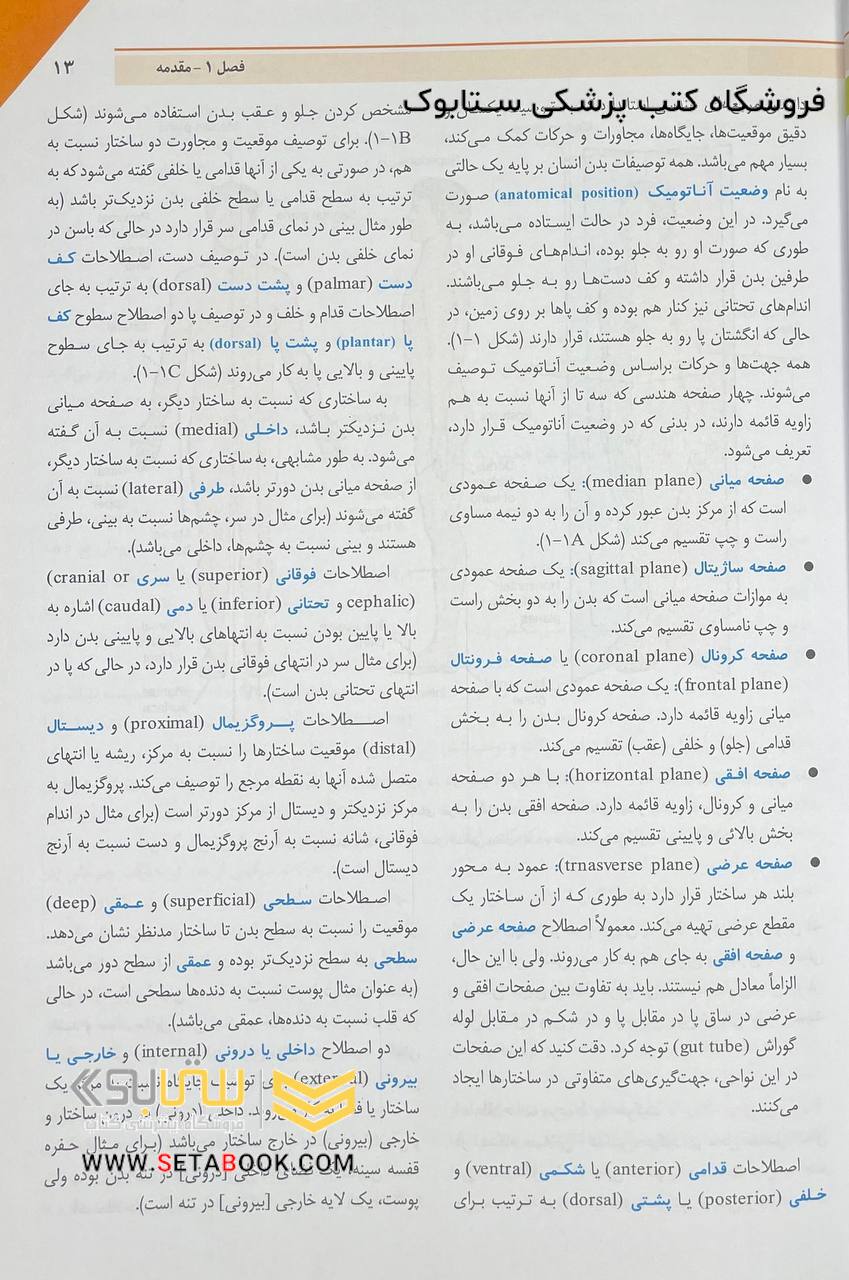 فصل ۱ - مقدمه
۱۳
فروشگاه کتب پزشکی ستابوک
دقیق موقعیت‌ها، جایگاه‌ها، مجاورات و حرکات کمک می‌کند،
بسیار مهم می‌باشد. همه توصیفات بدن انسان بر پایه یک حالتی
به نام وضعیت آناتومیک (anatomical position) صورت
می‌گیرد. در این وضعیت، فرد در حالت ایستاده می‌باشد، به
طوری که صورت او رو به جلو بوده، اندام‌های فوقانی او در
طرفین بدن قرار داشته و کف دست‌ها رو به جلو می‌باشند.
اندام‌های تحتانی نیز کنار هم بوده و کف پاها بر روی زمین، در
حالی که انگشتان پا رو به جلو هستند، قرار دارند (شکل ۱-۱).
همه جهت‌ها و حرکات براساس وضعیت آناتومیک توصیف
می‌شوند. چهار صفحه هندسی که سه تا از آنها نسبت به هم
زاویه قائمه دارند، در بدنی که در وضعیت آناتومیک قرار دارد،
تعریف می‌شود.
● صفحه میانی (median plane): یک صفحه عمودی
است که از مرکز بدن عبور کرده و آن را به دو نیمه مساوی
راست و چپ تقسیم می‌کند (شکل ۱A-۱).
● صفحه ساژیتال (sagittal plane): یک صفحه عمودی
به موازات صفحه میانی است که بدن را به دو بخش راست
و چپ نامساوی تقسیم می‌کند.
● صفحه کرونال (coronal plane) یا صفحه فرونتال
(frontal plane): یک صفحه عمودی است که با صفحه
میانی زاویه قائمه دارد. صفحه کرونال بدن را به بخش
قدامی (جلو) و خلفی (عقب) تقسیم می‌کند.
● صفحه افقی (horizontal plane): با هر دو صفحه
میانی و کرونال، زاویه قائمه دارد. صفحه افقی بدن را به
بخش بالائی و پایینی تقسیم می‌کند.
● صفحه عرضی (trnasverse plane): عمود به محور
بلند هر ساختار قرار دارد به طوری که از آن ساختار یک
مقطع عرضی تهیه می‌کند. معمولاً اصطلاح صفحه عرضی
و صفحه افقی به جای هم به کار می‌روند. ولی با این حال،
الزاماً معادل هم نیستند. باید به تفاوت بین صفحات افقی و
عرضی در ساق پا در مقابل پا و در شکم در مقابل لوله
گوراش (gut tube) توجه کرد. دقت کنید که این صفحات
در این نواحی، جهت‌گیری‌های متفاوتی در ساختارها ایجاد
می‌کنند.
اصطلاحات قدامی (anterior) یا شکمی (ventral) و
خلفی (posterior) یا پشتی (dorsal) به ترتیب برای
مشخص کردن جلو و عقب بدن استفاده می‌شوند (شکل
۱B-۱). برای توصیف موقعیت و مجاورت دو ساختار نسبت به
هم، در صورتی به یکی از آنها قدامی یا خلفی گفته می‌شود که به
ترتیب به سطح قدامی یا سطح خلفی بدن نزدیک‌تر باشد (به
طور مثال بینی در نمای قدامی سر قرار دارد در حالی که باسن در
نمای خلفی بدن است). در توصیف دست، اصطلاحات کف
دست (palmar) و پشت دست (dorsal) به ترتیب به جای
اصطلاحات قدام و خلف و در توصیف پا دو اصطلاح سطوح کف
پا (plantar) و پشت پا (dorsal) به ترتیب به جای سطوح
پایینی و بالایی پا به کار می‌روند (شکل ۱C-۱).
به ساختاری که نسبت به ساختار دیگر، به صفحه میانی
بدن نزدیکتر باشد، داخلی (medial) نسبت به آن گفته
می‌شود. به طور مشابهی، به ساختاری که نسبت به ساختار دیگر،
از صفحه میانی بدن دورتر باشد، طرفی (lateral) نسبت به آن
گفته می‌شوند (برای مثال در سر، چشم‌ها نسبت به بینی، طرفی
هستند و بینی نسبت به چشم‌ها، داخلی می‌باشد).
اصطلاحات فوقانی (superior) یا سری (cranial or
cephalic) و تحتانی (inferior) یا دمی (caudal) اشاره به
بالا یا پایین بودن نسبت به انتهاهای بالایی و پایینی بدن دارد
(برای مثال سر در انتهای فوقانی بدن قرار دارد، در حالی که پا در
انتهای تحتانی بدن است).
اصطلاحات پروگزیمال (proximal) و دیستال
(distal) موقعیت ساختارها را نسبت به مرکز، ریشه یا انتهای
متصل شده آنها به نقطه مرجع را توصیف می‌کند. پروگزیمال به
مرکز نزدیکتر و دیستال از مرکز دورتر است (برای مثال در اندام
فوقانی، شانه نسبت به آرنج پروگزیمال و دست نسبت به آرنج
دیستال است).
اصطلاحات سطحی (superficial) و عمقی (deep)
موقعیت را نسبت به سطح بدن تا ساختار مدنظر نشان می‌دهد.
سطحی به سطح نزدیک‌تر بوده و عمقی از سطح دور می‌باشد
(به عنوان مثال پوست نسبت به دنده‌ها سطحی است، در حالی
که قلب نسبت به دنده‌ها، عمقی می‌باشد).
دو اصطلاح داخلی یا درونی (internal) و خارجی یا
بیرونی (external) برای توصیف جایگاه نسبت به مرکز یک
ساختار یا فضا به کار می‌روند. داخلی (درونی) در درون ساختار و
خارجی (بیرونی) در خارج ساختار می‌باشد (برای مثال حفره
قفسه سینه، یک فضای داخلی [درونی] در تنه بدن بوده ولی
پوست، یک لایه خارجی [بیرونی] در تنه است).
ستابوک
فروشگاه اینترنتی کتاب
WWW.SETABOOK.COM